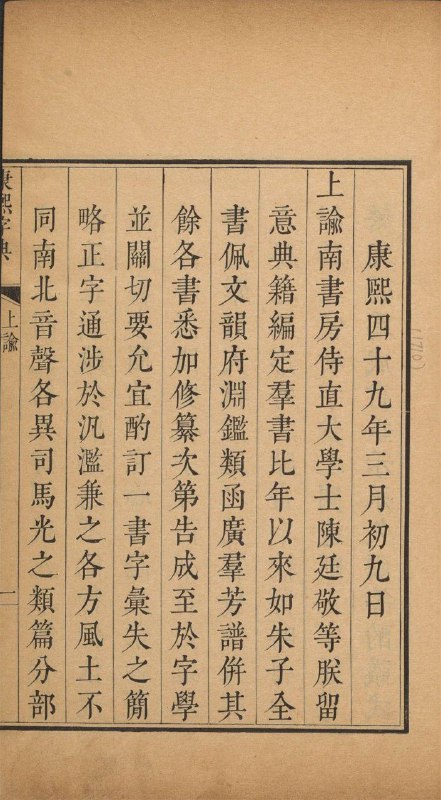 康熙四十九年三月初九日
上諭南書房侍直大學士陳廷敬等朕留
意典籍編定羣書比年以來如朱子全
書佩文韻府淵鑑類函廣羣芳譜併其
餘各書悉加修纂次第告成至於字學
並關切要允宜酌訂一書字彙失之簡
略正字通涉於汎濫兼之各方風土不
同南北音聲各異司馬光之類篇分部
康熙字典
上諭
一
(1710)